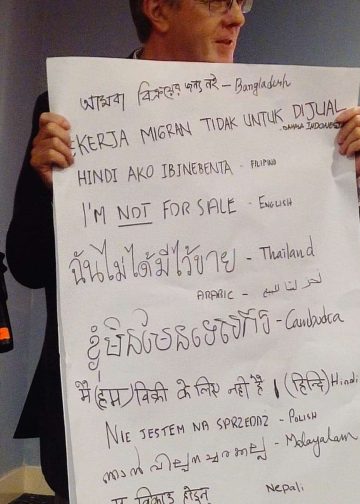 আমরা বিক্রয়ের জন্য নই – Bangladesh
KERJA MIGRAN TIDAK UNTUK DIJUAL
BAHASA INDONESIA
HINDI AKO IBINEBENTA - FILIPINO
I'M NOT FOR SALE - ENGLISH
ฉันไม่ได้มีไว้ขาย - Thailand
ARABIC -
ខ្ញុំមិនមែន - Cambodia
मैं (हम) बिक्री के लिए नहीं है । (हिन्दि) Hindi
NIE JESTEM NA SPRZEDAŻ - POLISH
- Malayalam
Nepali